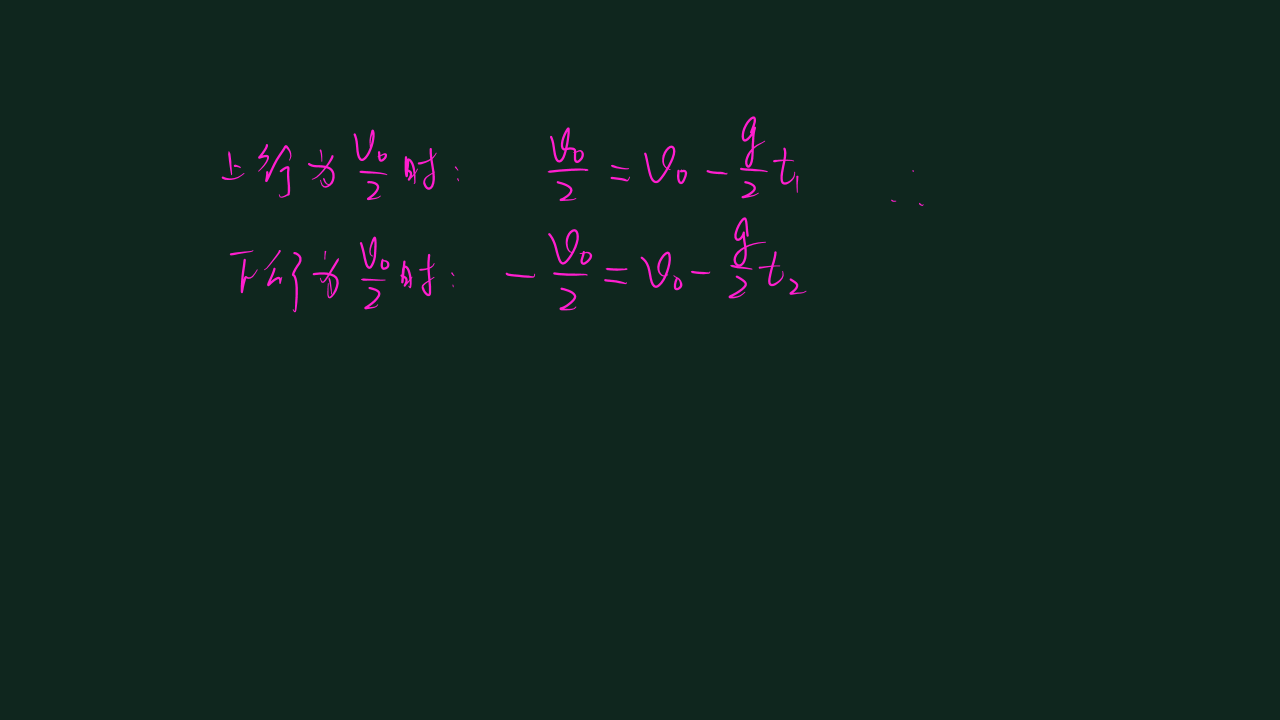 上行为 v₀/2 时: v₀/2 = v₀ - g/2 t₁ ∴
下行为 v₀/2 时: - v₀/2 = v₀ - g/2 t₂